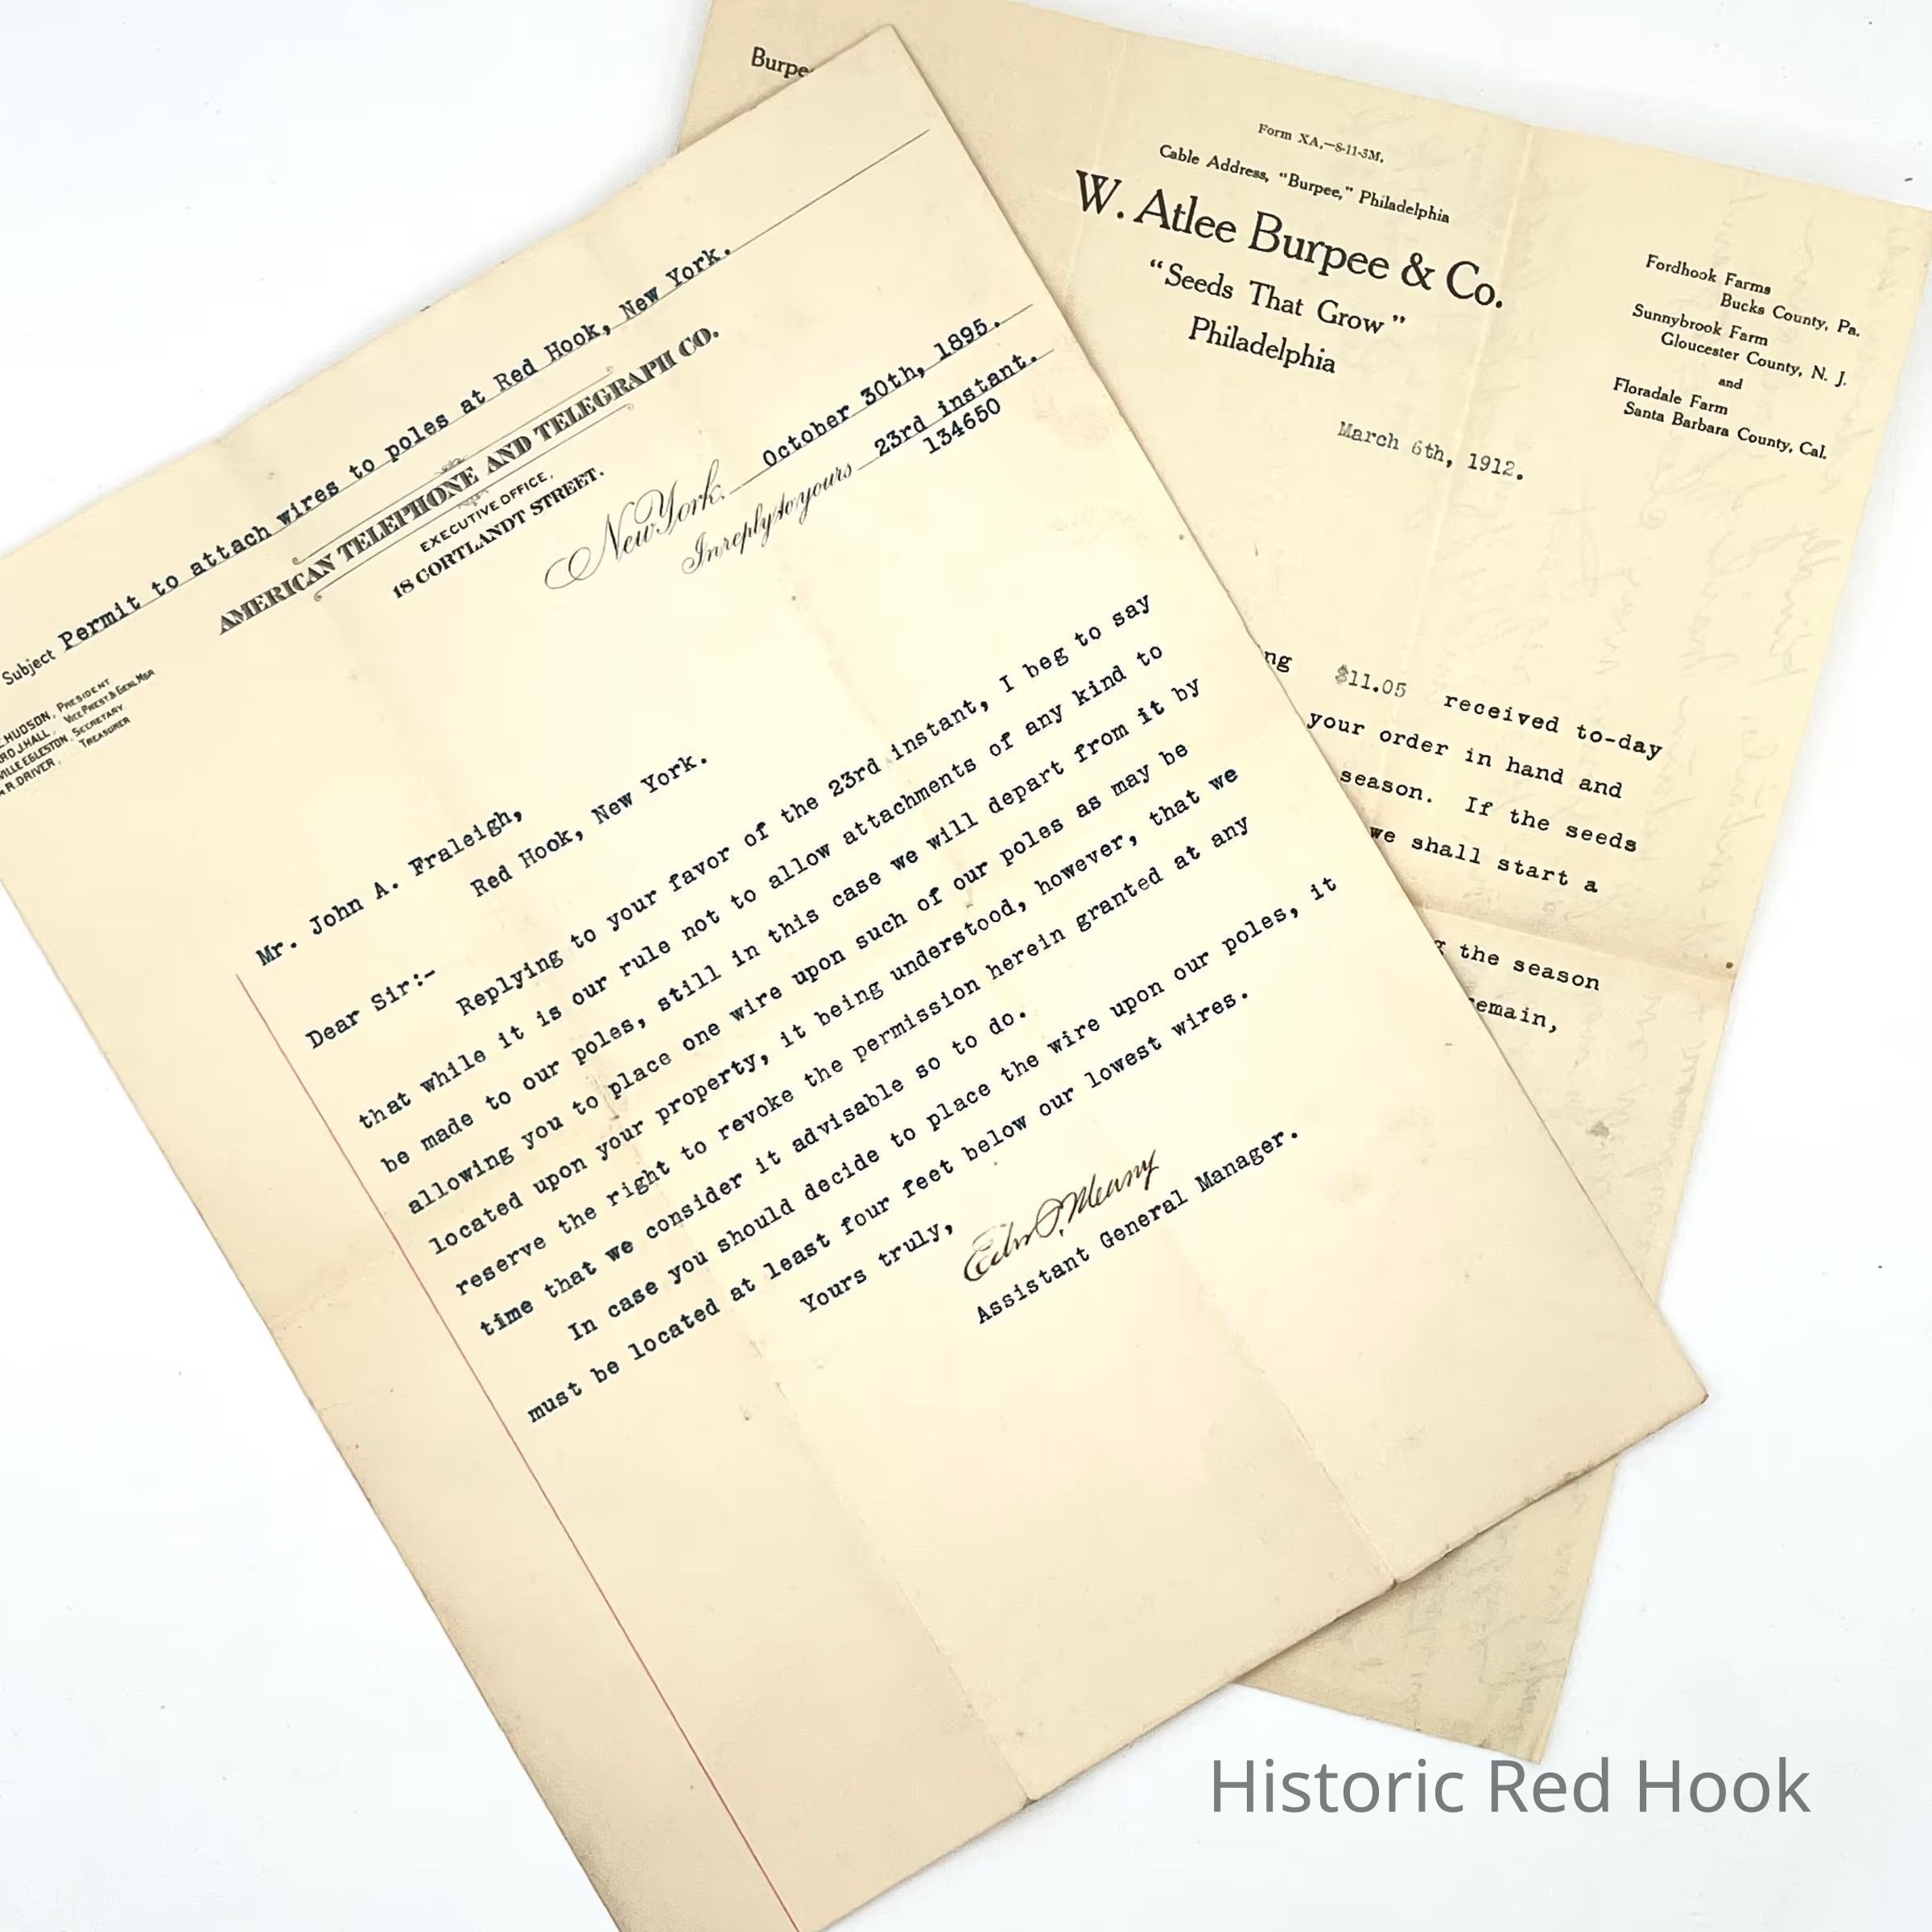 Subject Permit to attach wires to poles at Red Hook, New York.
AMERICAN TELEPHONE AND TELEGRAPH CO.
EXECUTIVE OFFICE,
18 CORTLANDT STREET.
HUDSON, PRESIDENT
J. HALL, VICE PREST. & GENL. MGR
VILLE EGLESTON, SECRETARY.
R. DRIVER, TREASURER
New York, October 30th, 1895.
In reply to yours 23rd instant.
134650
Mr. John A. Fraleigh,
Red Hook, New York.
Dear Sir:-
Replying to your favor of the 23rd instant, I beg to say
that while it is our rule not to allow attachments of any kind to
be made to our poles, still in this case we will depart from it by
allowing you to place one wire upon such of our poles as may be
located upon your property, it being understood, however, that we
reserve the right to revoke the permission herein granted at any
time that we consider it advisable so to do.
In case you should decide to place the wire upon our poles, it
must be located at least four feet below our lowest wires.
Yours truly,
Assistant General Manager.
Burpee
Form XA.—8-11-3M.
Cable Address, "Burpee," Philadelphia
W. Atlee Burpee & Co.
"Seeds That Grow"
Philadelphia
Fordhook Farms
Bucks County, Pa.
Sunnybrook Farm
Gloucester County, N. J.
and
Floradale Farm
Santa Barbara County, Cal.
March 6th, 1912.
ng $11.05 received to-day
your order in hand and
season. If the seeds
we shall start a
g the season
emain,
Historic Red Hook